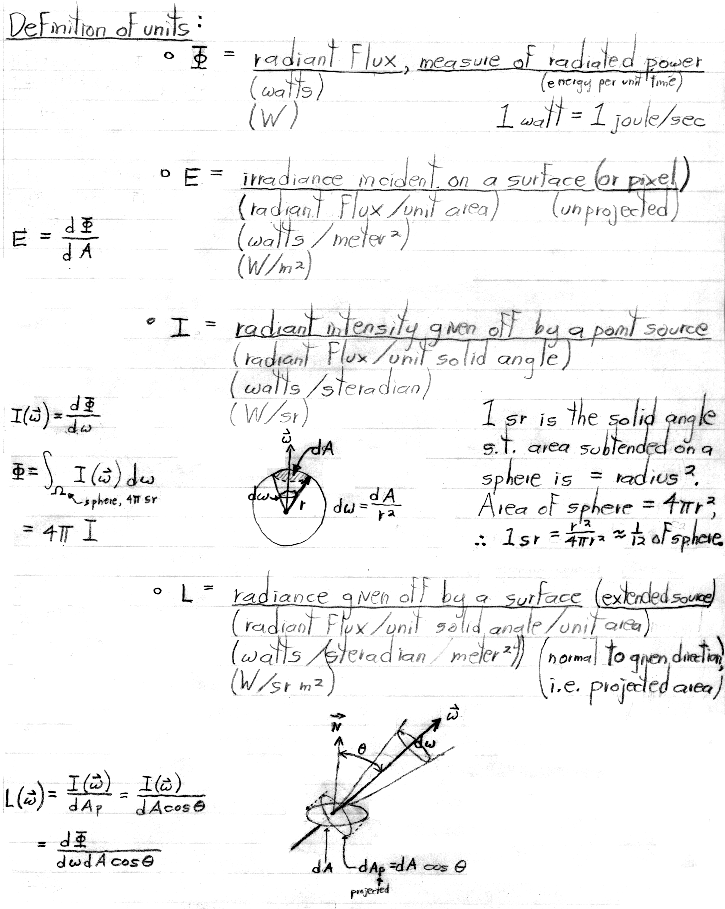 Definition of units:
° Φ = radiant flux, measure of radiated power
(watts) (energy per unit time)
(W) 1 watt = 1 joule/sec
° E = irradiance incident on a surface (or pixel)
(radiant flux/unit area) (unprojected)
E = dΦ/dA (watts/meter²)
(W/m²)
° I = radiant intensity given off by a point source
(radiant flux/unit solid angle)
(watts/steradian)
(W/sr)
I(ω⃗) = dΦ/dω
Φ = ∫_Ω I(ω⃗) dω
sphere, 4π sr
= 4π I
ω⃗
dA
dω
r
dω = dA/r²
1 sr is the solid angle
s.t. area subtended on a
sphere is = radius².
Area of sphere = 4πr²,
∴ 1 sr = r²/4πr² ≈ 1/12 of sphere.
° L = radiance given off by a surface (extended source)
(radiant flux/unit solid angle/unit area)
(watts/steradian/meter²) (normal to given direction,
(W/sr m²) i.e. projected area)
L(ω⃗) = I(ω⃗)/dAp = I(ω⃗)/dA cos θ
= dΦ/dω dA cos θ
N⃗
θ
ω⃗
dω
dA
dAp = dA cos θ
projected